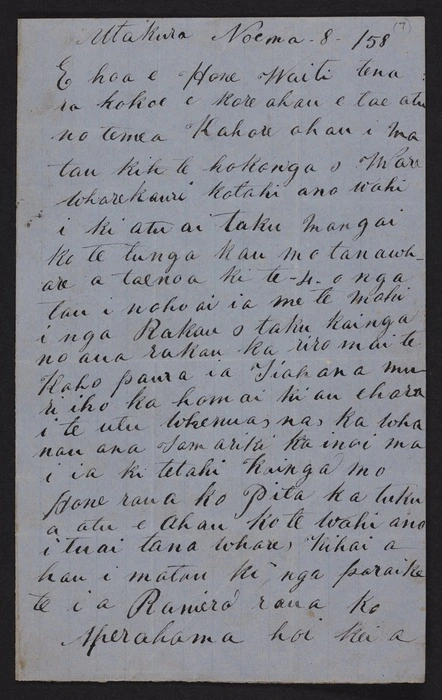 Utakura Noema - 8 - 158
(7)
E hoa e Hone Waiti tena
ra kokoe e kore ahau e tae atu
no temea Kahore ahau i ma
tau kih te hokonga o Mare
wharekauri kotahi ano wahi
i ki atu ai taku Mangai
ko te tunga kau mo tanawh-
are a taenoa ki te -4- o nga
tau i noho ai ia me te mohi
i nga Rakau o taku kainga
no aua rakau ka riro mai te
Kaho paura ia Tiahana mu
ri iho ka homai ki au ehara
i te utu whenua, na, ka wha
nau ana Tamariki ka inoi ma
i ia ki tetahi kainga mo
Hone raua ko Pita ka tuku
a atu e Ahau ko te wahi ano
i tu ai tana whare, kihai a
hau i matau ki nga paraike
te i a Raniera raua ko
Aperahama hoi kei a